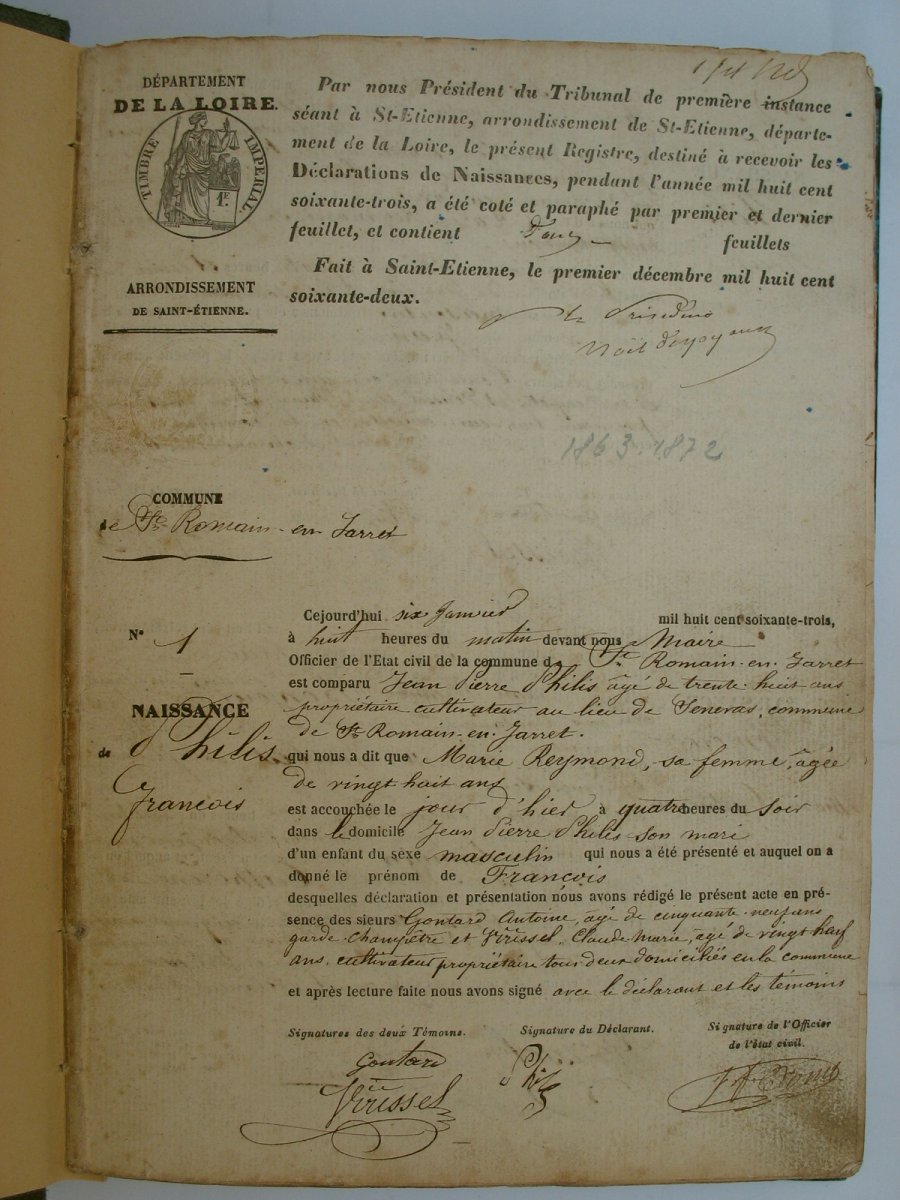 DÉPARTEMENT
DE LA LOIRE.
TIMBRE IMPERIAL.
1F.
ARRONDISSEMENT
DE SAINT-ÉTIENNE.
Par nous Président du Tribunal de première instance
séant à St-Etienne, arrondissement de St-Etienne, départe-
ment de la Loire, le présent Registre, destiné à recevoir les
Déclarations de Naissances, pendant l'année mil huit cent
soixante-trois, a été coté et paraphé par premier et dernier
feuillet, et contient feuillets
Fait à Saint-Etienne, le premier décembre mil huit cent
soixante-deux.
1863-1872
COMMUNE
de St Romain-en Jarret
N° 1
NAISSANCE
de Philis
François
Cejourd'hui six Janvier mil huit cent soixante-trois,
à huit heures du matin devant nous Maire
Officier de l'Etat civil de la commune de St Romain-en-Jarret
est comparu Jean Pierre Philis âgé de trente-huit ans
propriétaire cultivateur au lieu de Seneras, commune
de St Romain-en-Jarret.
qui nous a dit que Marie Reymond, sa femme, âgée
de vingt huit ans
est accouchée le jour d'hier à quatre heures du soir
dans le domicile Jean Pierre Philis son mari
d'un enfant du sexe masculin qui nous a été présenté et auquel on a
donné le prénom de François
desquelles déclaration et présentation nous avons rédigé le présent acte en pré-
sence des sieurs Gontard Antoine, agé de cinquante-neuf ans
garde-Champêtre et Virissel Claude Marie, agé de vingt neuf
ans, cultivateur propriétaire tous deux domiciliés en la commune
et après lecture faite nous avons signé avec le déclarant et les témoins
Signatures des deux Témoins. Signature du Déclarant. Signature de l'Officier
de l'état civil.
Gontard
Philis
Virissel